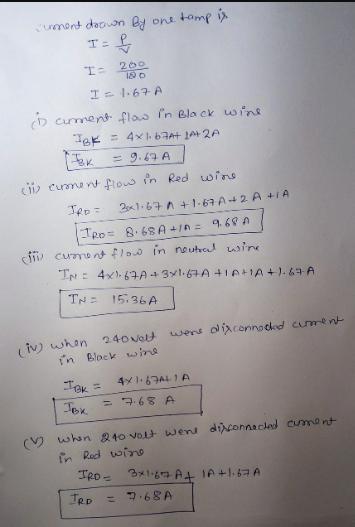 current drawn By one lamp is
I = P/V
I = 200/120
I = 1.67 A
(i) current flow in Black wire
IBK = 4x1.67A+1A+2A
IBK = 9.67 A
(ii) current flow in Red wire
IRD = 3x1.67 A +1.67A+2 A +1A
IRD = 8.68A+1A = 9.68 A
(iii) current flow in neutral wire
IN = 4x1.67A+3x1.67A +1A+1A+1.67A
IN = 15.36A
(iv) when 240 volt were disconnected current
in Black wire
IBK = 4x1.67A+1A
IBK = 7.68 A
(v) when 240 volt were disconnected current
in Red wire
IRD = 3x1.67 A+ 1A+1.67A
IRD = 7.68A